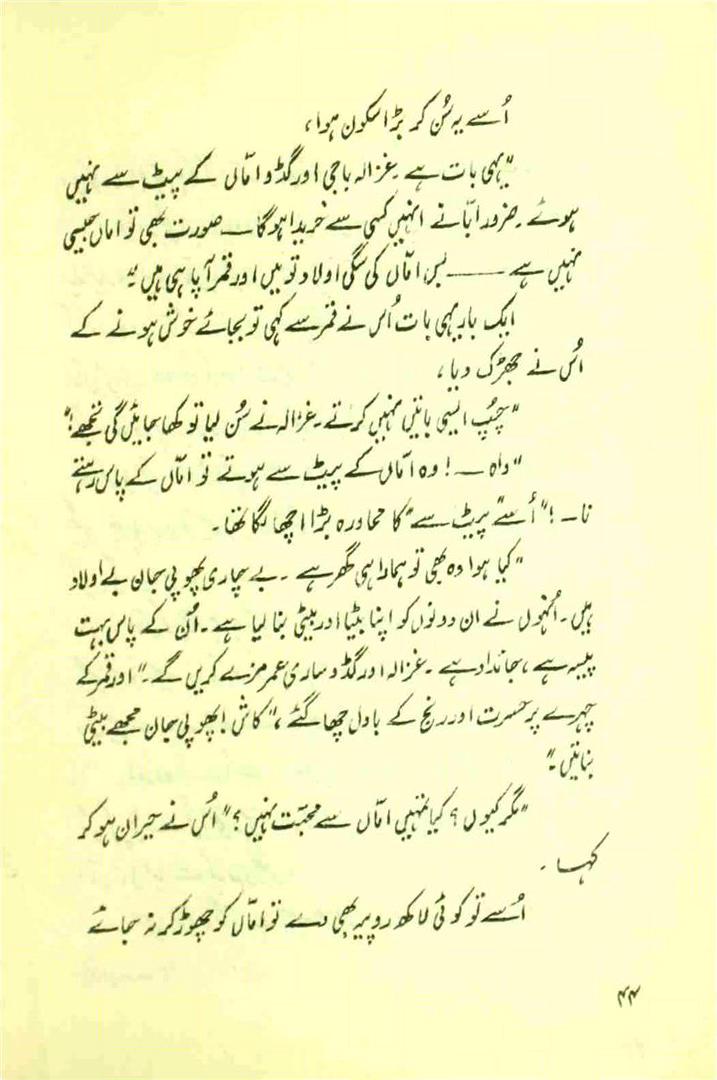 اُسے یہ سُن کر بڑا سکون ہوا،
"یہی بات ہے۔ غزالہ باجی اور گڈو امّاں کے پیٹ سے نہیں
ہوئے۔ ضرور ابّا نے انہیں کسی سے خریدا ہوگا — صورت بھی تو اماں جیسی
نہیں ہے —— بس امّاں کی سگی اولاد تو میں اور قمر آپا ہی ہیں۔"
ایک بار یہی بات اُس نے قمر سے کہی تو بجائے خوش ہونے کے
اُس نے جھڑک دیا،
"چُپ ایسی باتیں نہیں کرتے۔ غزالہ نے سُن لیا تو کھا جائیں گی تجھے!"
"واہ —! وہ امّاں کے پیٹ سے ہوتے تو امّاں کے پاس رہتے
نا —!" اُسے "پیٹ سے" کا محاورہ بڑا اچھا لگا تھا۔
"کیا ہوا وہ بھی تو ہمارا ہی گھر ہے۔ بے چاری پھوپی جان بے اولاد
ہیں۔ اُنہوں نے ان دونوں کو اپنا بیٹا اور بیٹی بنا لیا ہے۔ اُن کے پاس بہت
پیسہ ہے، جائداد ہے۔ غزالہ اور گڈو ساری عمر مزے کریں گے۔" اور قمر کے
چہرے پر حسرت اور رنج کے بادل چھا گئے، "کاش! پھوپی جان مجھے بیٹی
بناتیں۔"
"مگر کیوں؟ کیا تمہیں امّاں سے محبّت نہیں؟" اُس نے حیران ہو کر
کہا۔
اُسے تو کوئی لاکھ روپیہ بھی دے تو امّاں کو چھوڑ کر نہ جائے
۴۴